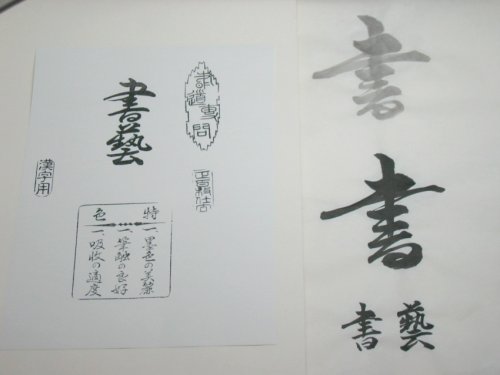 書道專問
書藝
漢字用
特色
一、墨色の美麗
一、筆触の良好
一、吸收の適度
書
書
書藝